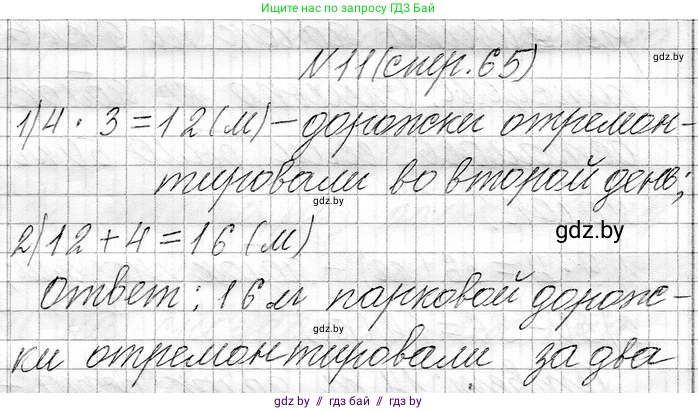 Ищите нас по запросу ГДЗ Бай
gdz.by
N11(стр.65)
1) 4 · 3 = 12 (м) – дорожки отремон-
тировали во второй день;
2) 12 + 4 = 16 (м)
gdz.by
Ответ: 16 м парковой дорож-
gdz.by
ки отремонтировали за два
gdz.by // гдз бай // gdz.by